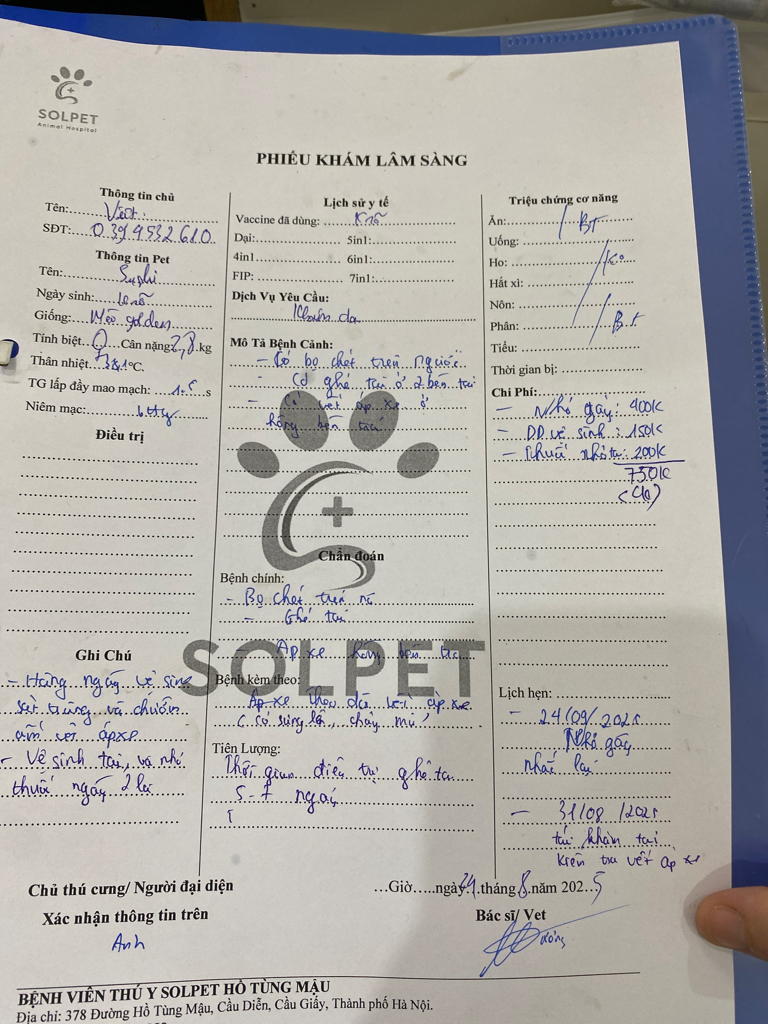 SOLPET
Animal Hospital
PHIẾU KHÁM LÂM SÀNG
Thông tin chủ
Tên: Việt.
SĐT: 0394532610
Thông tin Pet
Tên: Sushi
Ngày sinh:
Giống: Mèo golden
Tính biệt Cân nặng 2,8 kg
Thân nhiệt 38,1 °C.
TG lấp đầy mao mạch: 1.5 s
Niêm mạc:
Điều trị
Ghi Chú
- Hàng ngày vệ sinh
sát trùng và chườm
ấm với ápxe
- Vệ sinh tai, và nhỏ
thuốc ngày 2 lần
Lịch sử y tế
Vaccine đã dùng:
Dại: 5in1:
4in1 6in1:
FIP: 7in1:
Dịch Vụ Yêu Cầu:
Khám da
Mô Tả Bệnh Cảnh:
- Có bọ chét trên người.
- Có ghẻ tai ở 2 bên tai
- Có vết áp xe ở
hông bên trái
Chẩn đoán
Bệnh chính:
- Bọ chét trên
- Ghẻ tai
Áp xe hông bên trái
SOLPET
Bệnh kèm theo:
Áp xe theo dõi vết áp xe
( có sưng lên, chảy mủ )
Tiên Lượng:
Thời gian điều trị ghẻ tai
5-7 ngày
Triệu chứng cơ năng
Ăn: BT
Uống:
Ho: Ko
Hắt xì:
Nôn:
Phân: B.T
Tiểu:
Thời gian bị:
Chi Phí:
- Nhỏ gáy: 400K
- DD vệ sinh: 150K
- Thuốc nhỏ tai: 200K
750K
(CK)
Lịch hẹn:
- 24/09/2025
Nhỏ gáy
nhắc lại
- 31/08/2025
tái khám tai
kiểm tra vết áp xe
Chủ thú cưng/ Người đại diện
Xác nhận thông tin trên
Anh
…Giờ…..ngày 24 tháng 8 năm 2025
Bác sĩ/ Vet
BỆNH VIỆN THÚ Y SOLPET HỒ TÙNG MẬU
Địa chỉ: 378 Đường Hồ Tùng Mậu, Cầu Diễn, Cầu Giấy, Thành phố Hà Nội.